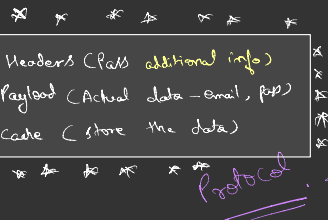 Headers (Pass additional info)
Payload (Actual data - email, pass)
Cache (store the data)
Protocol